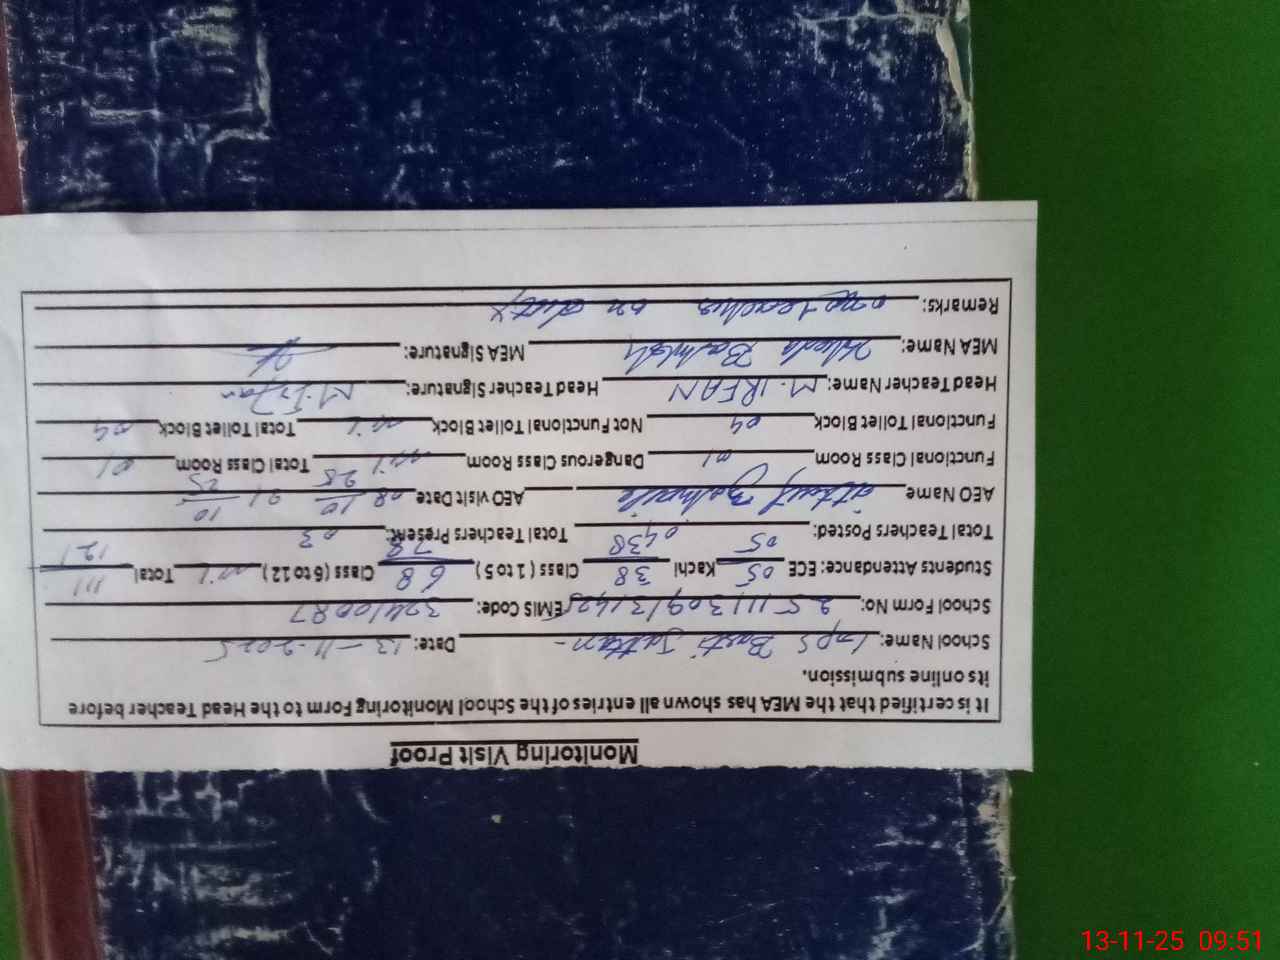 Monitoring Visit Proof
It is certified that the MEA has shown all entries of the School Monitoring Form to the Head Teacher before
its online submission.
School Name: Basti Date: 13-11-2025
School Form No: EMIS Code: 32410087
Students Attendance: ECE 05/05 Kachi 38/38 Class ( 1 to 5 ) 68/78 Class (6 to 12) nil Total 111/121
Total Teachers Posted: 04 Total Teachers Present: 03
AEO Name AEO visit Date 08/10/25 21/10/25
Functional Class Room 01 Dangerous Class Room nil Total Class Room 01
Functional Toilet Block 04 Not Functional Toilet Block nil Total Toilet Block 04
Head Teacher Name: M. IRFAN Head Teacher Signature: M. Irfan
MEA Name: MEA Signature:
Remarks: one teacher on duty
13-11-25 09:51